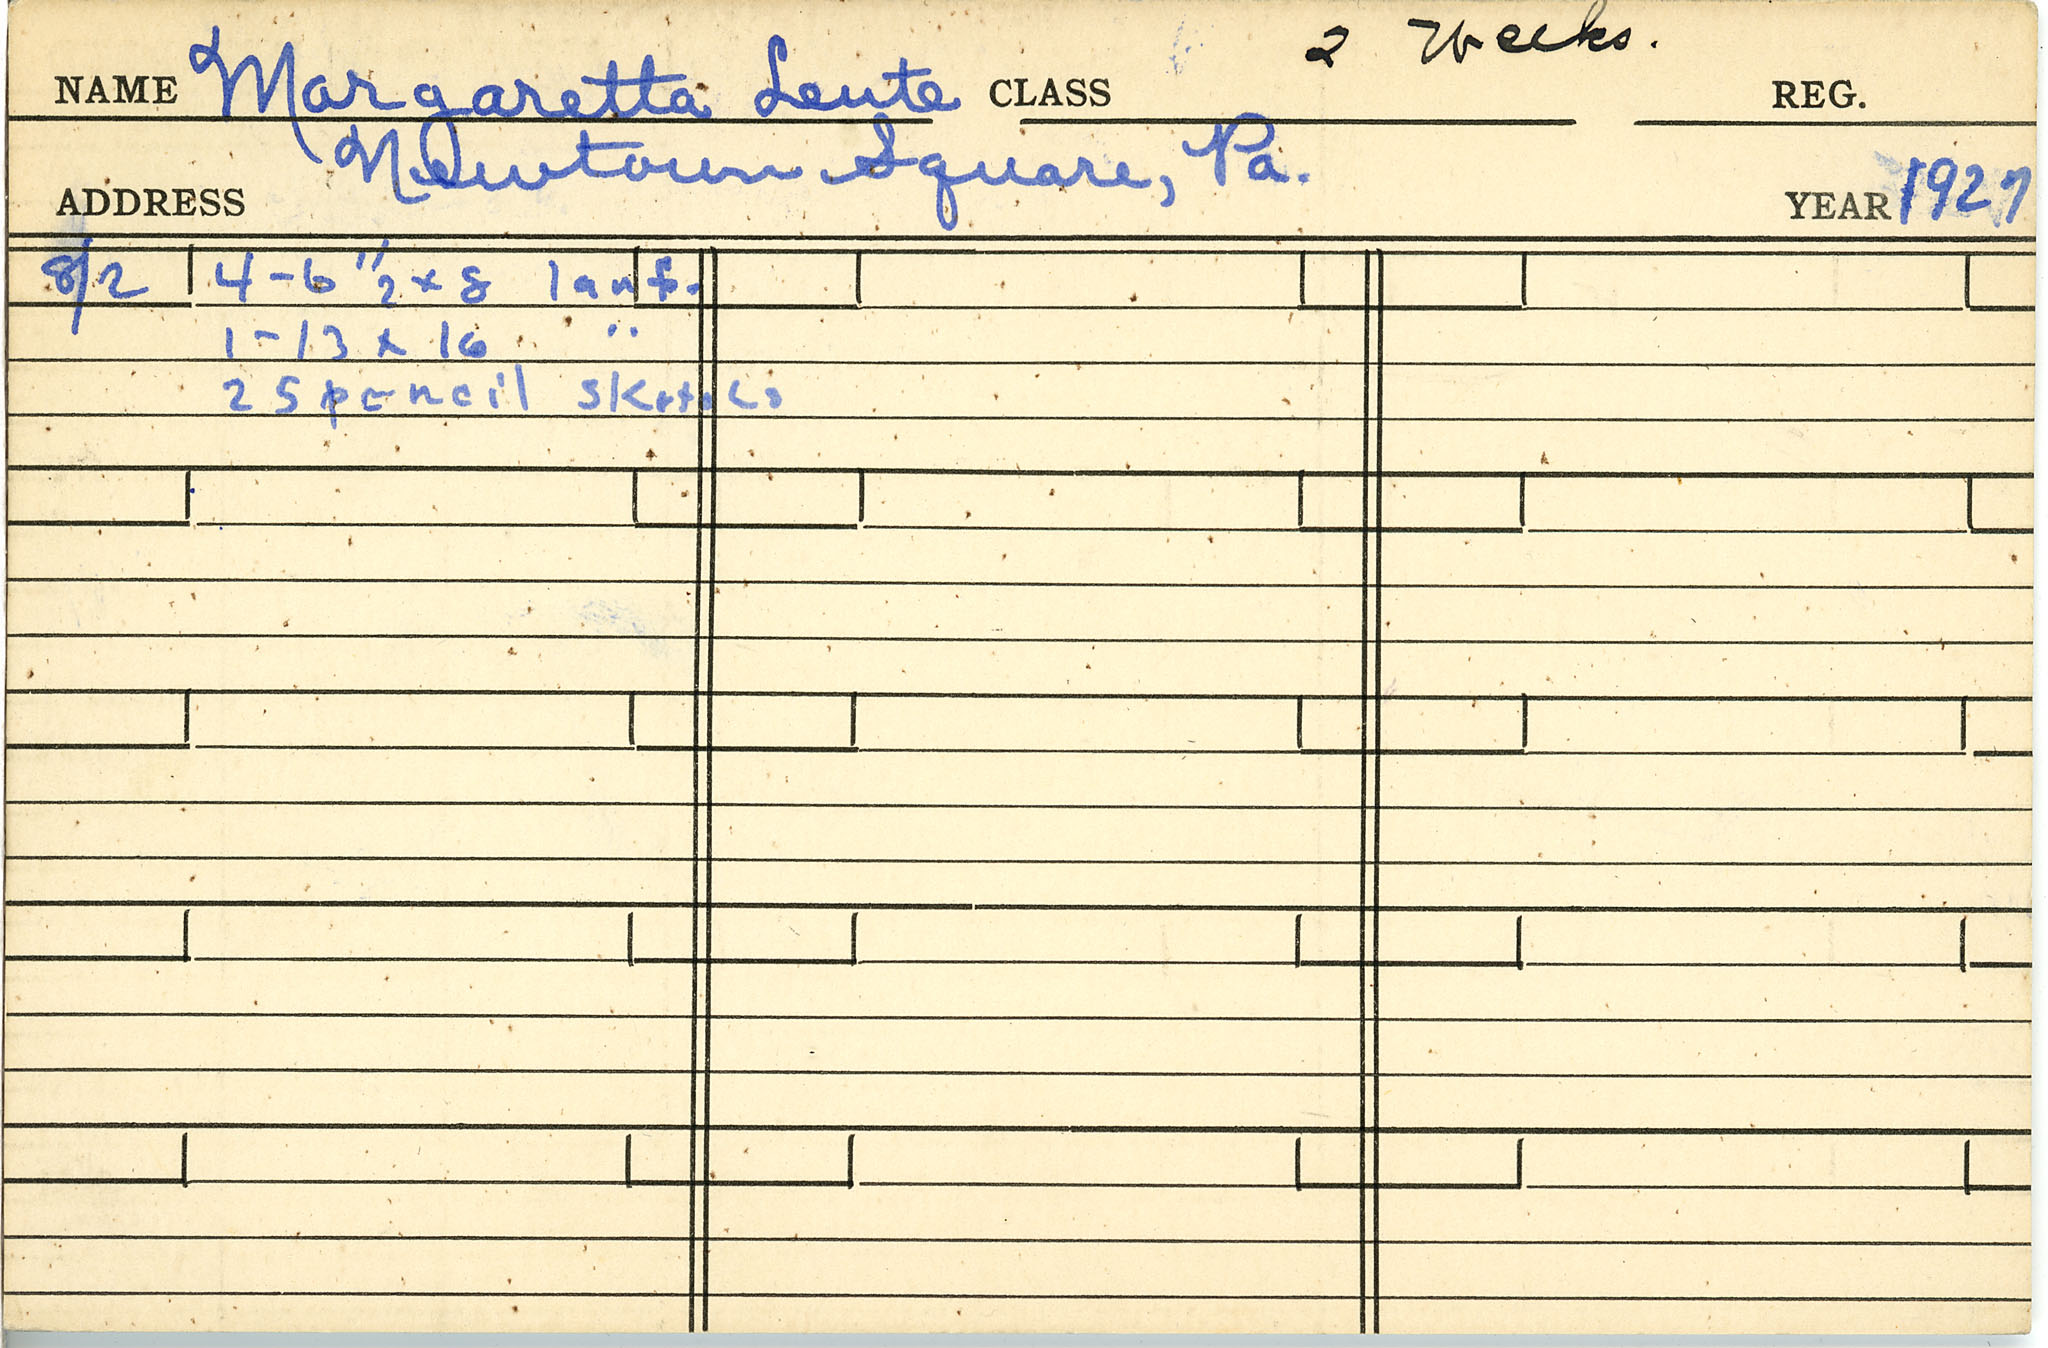 2 Weeks.
NAME Margaretta Lente CLASS REG.
Newtown Square, Pa.
ADDRESS YEAR 1927
8/2 4-6 1/2 x 8
1-13 x 16 "
25 pencil